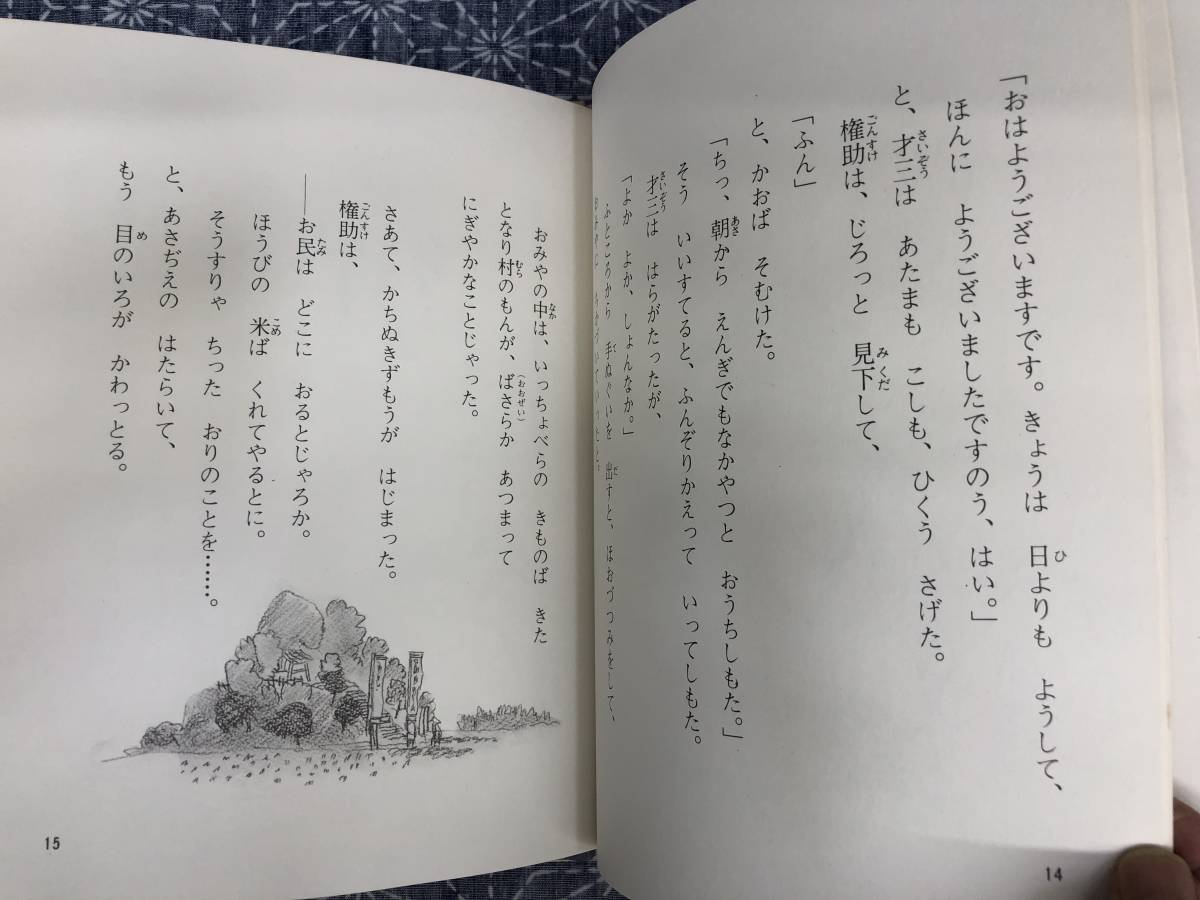 「おはようございますです。きょうは 日よりも ようして、
ほんに ようございましたですのう、はい。」
と、才三は あたまも こしも、ひくう さげた。
権助は、じろっと 見下して、
「ふん」
と、かおば そむけた。
「ちっ、朝から えんぎでもなかやつと おうちしもた。」
そう いいすてると、ふんぞりかえって いってしもた。
才三は はらがたったが、
「よか よか、しょんなか。」
ふところから 手ぬぐいを 出すと、ほおづつみをして、
14
おみやの中は、いっちょべらの きものば きた
となり村のもんが、ばさらか(おおぜい) あつまって
にぎやかなことじゃった。
さあて、かちぬきずもうが はじまった。
権助は、
――お民は どこに おるとじゃろか。
ほうびの 米ば くれてやるとに。
そうすりゃ ちった おりのことを……。
と、あさぢえの はたらいて、
もう 目のいろが かわっとる。
15